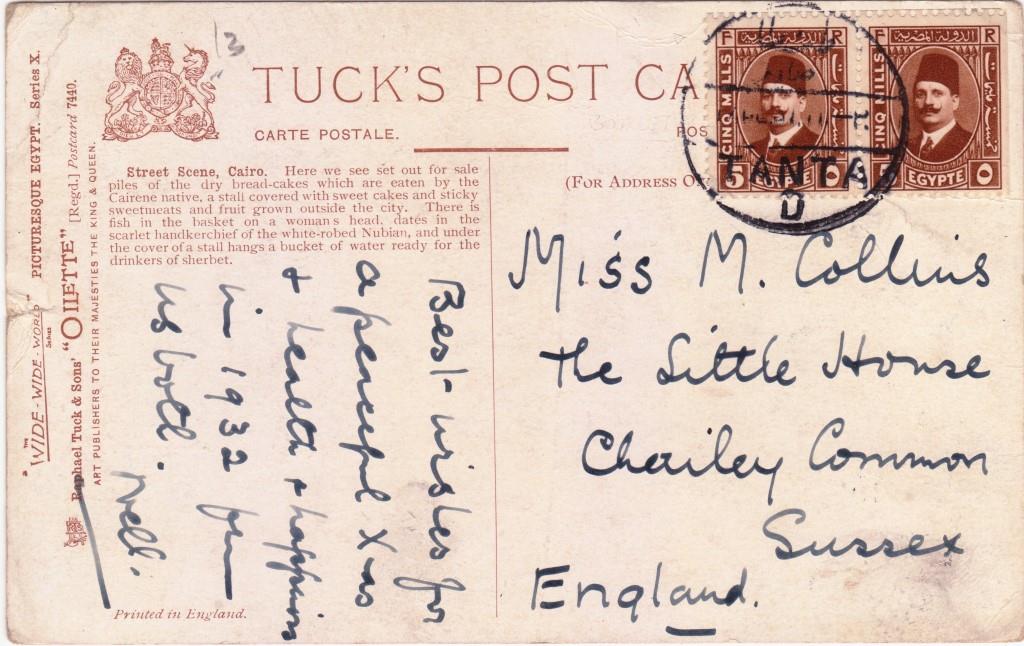 13
TUCK'S POST CA
CARTE POSTALE.
POS
(FOR ADDRESS O
Street Scene, Cairo. Here we see set out for sale
piles of the dry bread-cakes which are eaten by the
Cairene native, a stall covered with sweet cakes and sticky
sweetmeats and fruit grown outside the city. There is
fish in the basket on a woman's head, dates in the
scarlet handkerchief of the white-robed Nubian, and under
the cover of a stall hangs a bucket of water ready for the
drinkers of sherbet.
THE "WIDE-WIDE-WORLD" Series
PICTURESQUE EGYPT. Series X.
Raphael Tuck & Sons' "OILETTE" [Regd.] Postcard 7440.
ART PUBLISHERS TO THEIR MAJESTIES THE KING & QUEEN.
Printed in England.
Best wishes for
a peaceful Xmas
& health & happiness
in 1932 from
us both.
Nell.
Miss M. Collins
The Little House
Chailey Common
Sussex
England.
F الدولة المصرية R
CINQ MILLS
5 EGYPTE ٥
F الدولة المصرية R
CINQ MILLS
خمسة مليمات
EGYPTE ٥
طنطا
TANTA
D